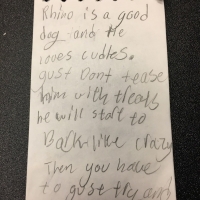 Rhino is a good
dog and He
loves cudles.
gust Dont tease
him with treats
he will start to
Bark like crazy
Then you have
to gust try and